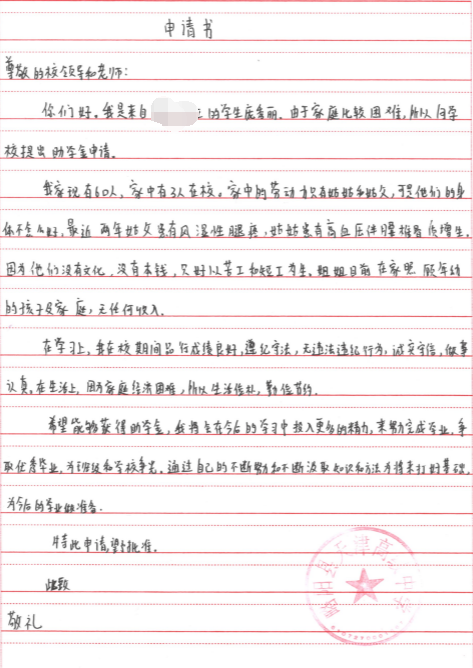 申请书
尊敬的校领导和老师:
你们好。我是来自 的学生庞秀丽。由于家庭比较困难,所以向学
校提出助学金申请。
我家现有6口人,家中有3人在校。家中的劳动力只有姑姑和姑父,可是他们的身
体不怎么好,最近两年姑父患有风湿性腿疼,姑姑患有高血压伴腰椎骨质增生。
因为他们没有文化,没有本钱,只好以苦工和短工为生。姐姐目前在家照顾年幼
的孩子及家庭,无任何收入。
在学习上,我在校期间品行成绩良好,遵纪守法,无违法违纪行为,诚实守信,做事
认真。在生活上,因为家庭经济困难,所以生活俭朴,勤俭节约。
希望能够获得助学金,我将会在今后的学习中投入更多的精力,来努力完成学业,争
取优秀毕业,为班级和学校争光。通过自己的不断努力和不断汲取知识和方法为将来打好基础,
为今后的学业做准备。
特此申请,望批准。
此致
敬礼
天津高级中学